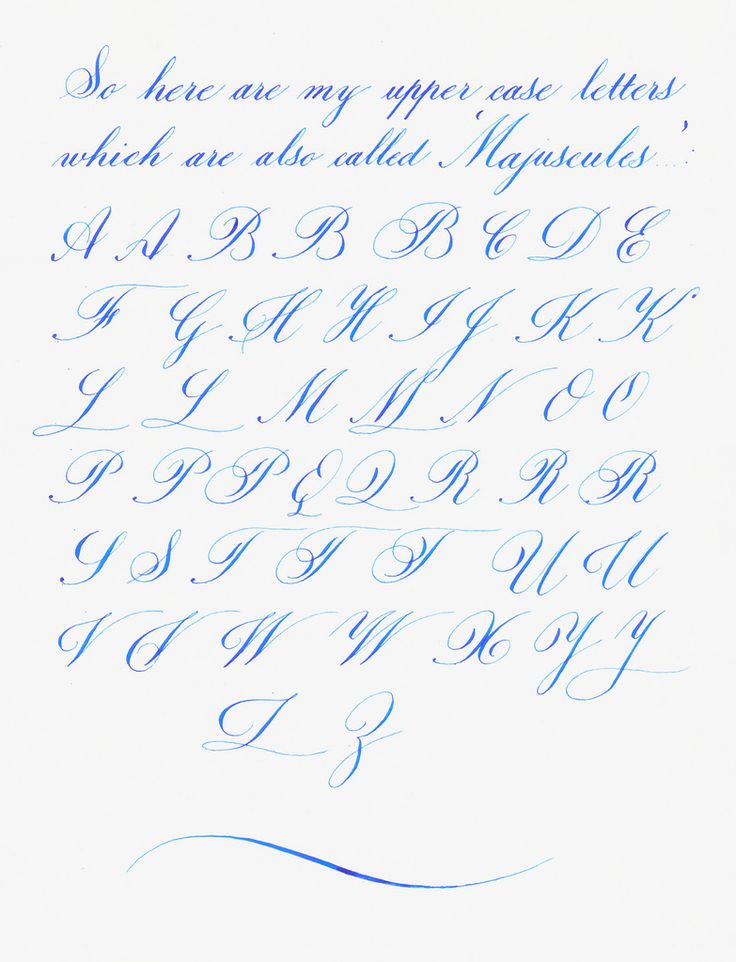 So here are my upper case letters
which are also called 'Majuscules...':
A A B B B C D E
F G H H I J K K
L L M M N O O
P P P Q Q R R R
S S T T T U U
V V W W X Y Y
Z Z